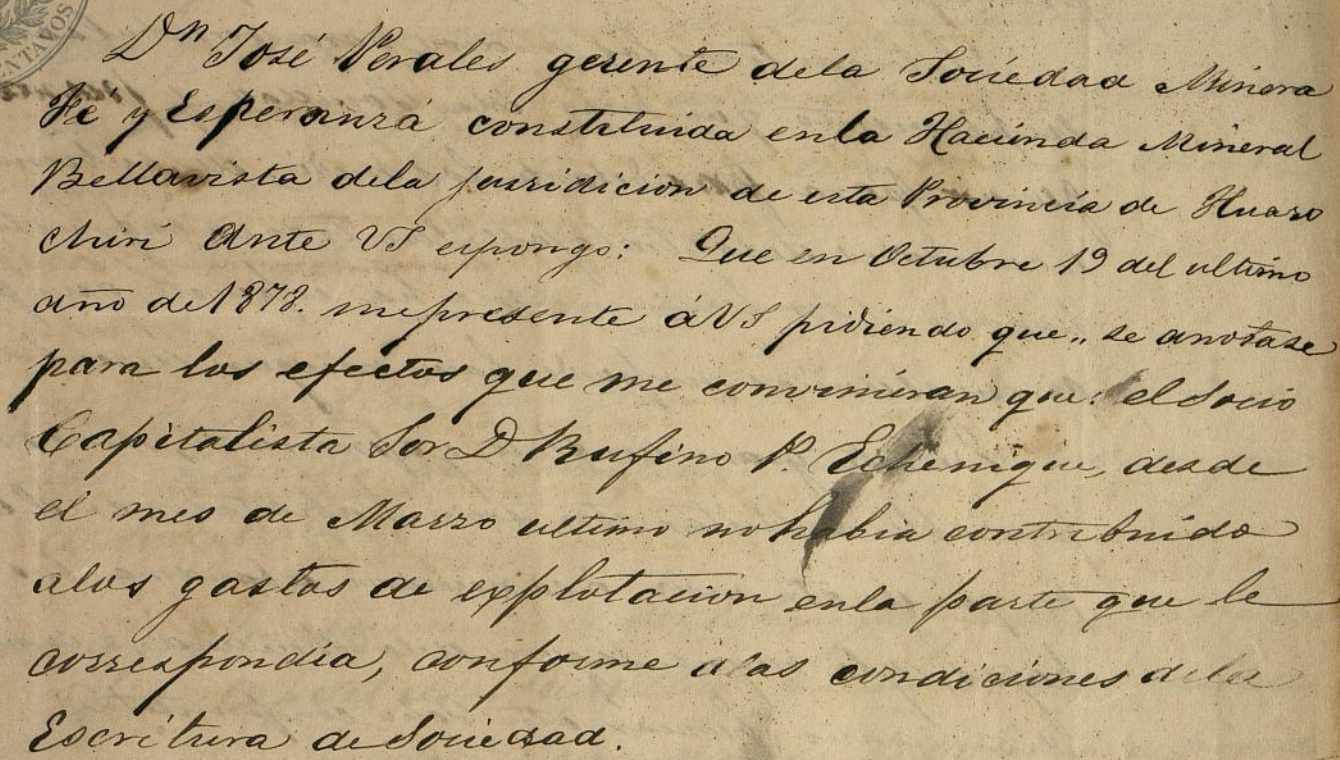 ENTAVOS
Dn José Perales gerente dela Sociedad Minera
Fé y Esperanza constituida enla Hacienda Mineral
Bellavista dela jurridicion de esta Provincia de Huaro
chiri Ante VS espongo: Que en Octubre 19 del ultimo
año de 1878. mepresente áVS pidiendo que „ se anotase
para los efectos que me convinieran que: el Socio
Capitalista Sor D Rufino P. Echenique, desde
el mes de Marzo ultimo nohabia contribuido
alos gastos de explotacion enla parte que le
correspondia, conforme alas condiciones dela
Escritura de Sociedad.